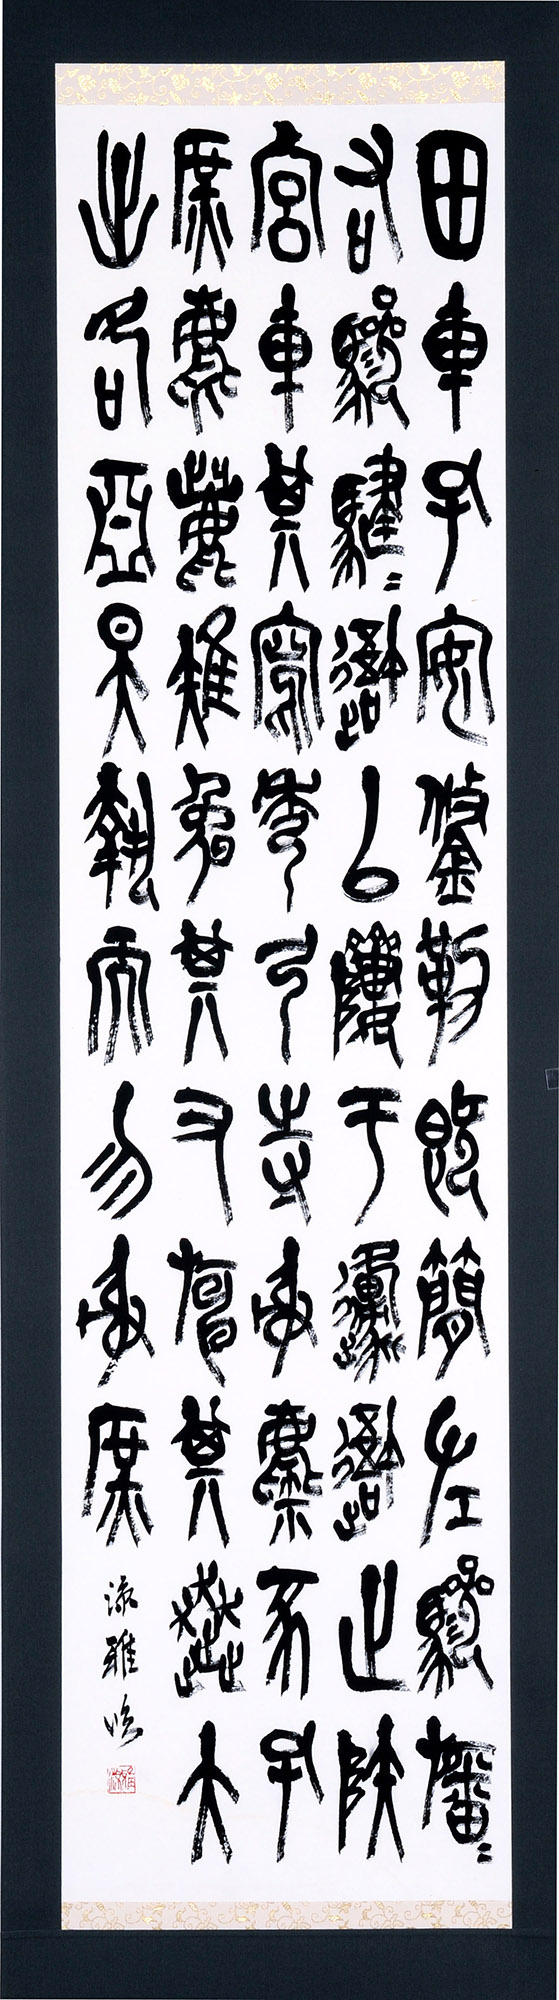 田車孔安鋚勒既簡左驂旛〻
右驂騝〻吾以隮于邍吾止陕
宮車其寫秀弓寺射麋豕孔
庶麀鹿雉兔其又其奔大
出各亞昊執而勿射庶
雅臨